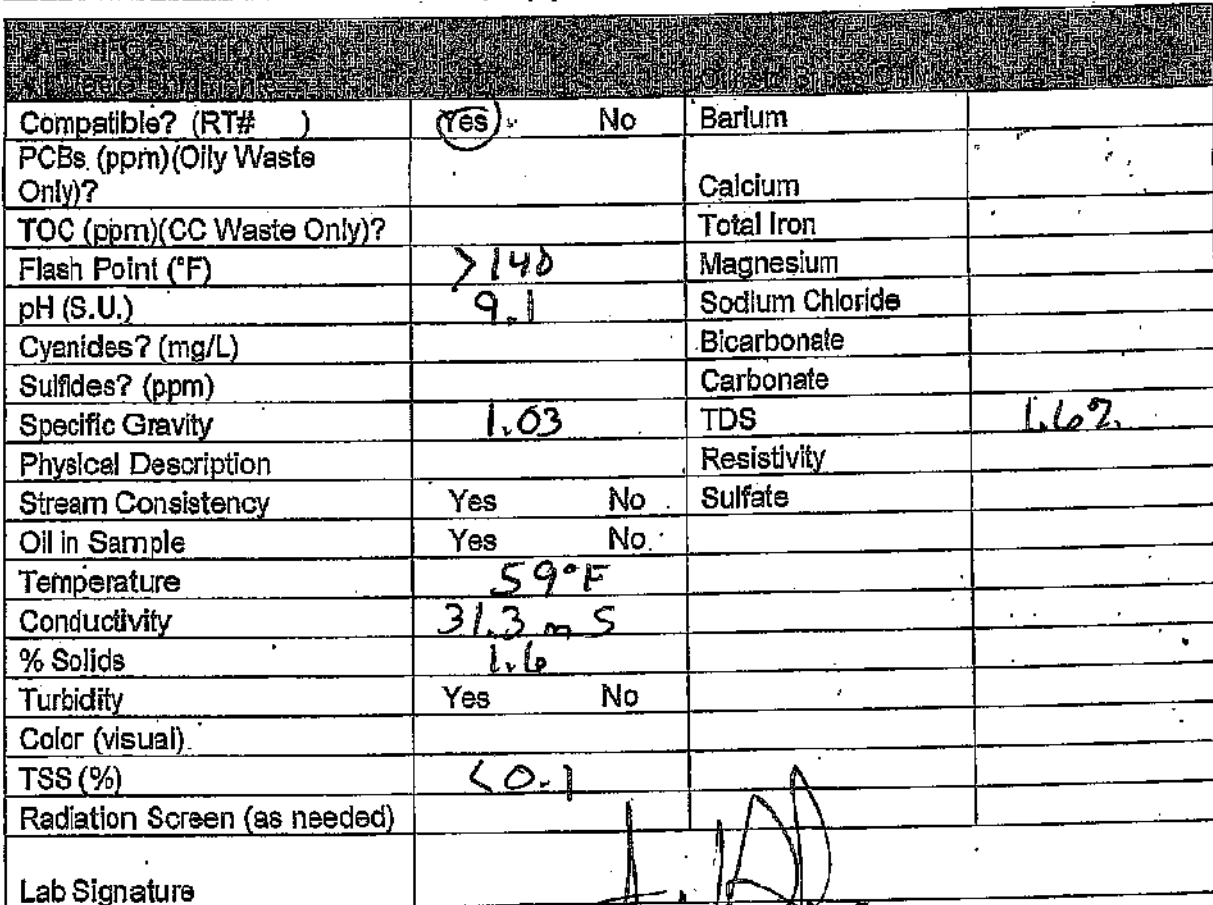 LAB INFORMATION
Compatible? (RT# ) Yes No Barium
PCBs (ppm)(Oily Waste
Only)? Calcium
TOC (ppm)(CC Waste Only)? Total Iron
Flash Point (°F) >140 Magnesium
pH (S.U.) 9.1 Sodium Chloride
Cyanides? (mg/L) Bicarbonate
Sulfides? (ppm) Carbonate
Specific Gravity 1.03 TDS 1.6%
Physical Description Resistivity
Stream Consistency Yes No Sulfate
Oil in Sample Yes No
Temperature 59°F
Conductivity 31.3 mS
% Solids 1.6
Turbidity Yes No
Color (visual)
TSS (%) <0.1
Radiation Screen (as needed)
Lab Signature